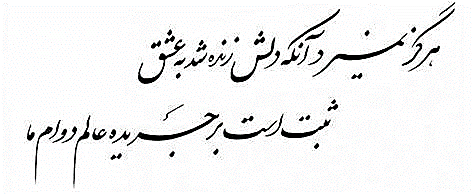 هرگز نمیرد آنکه دلش زنده شد به عشق
ثبت است بر جریدهٔ عالم دوام ما